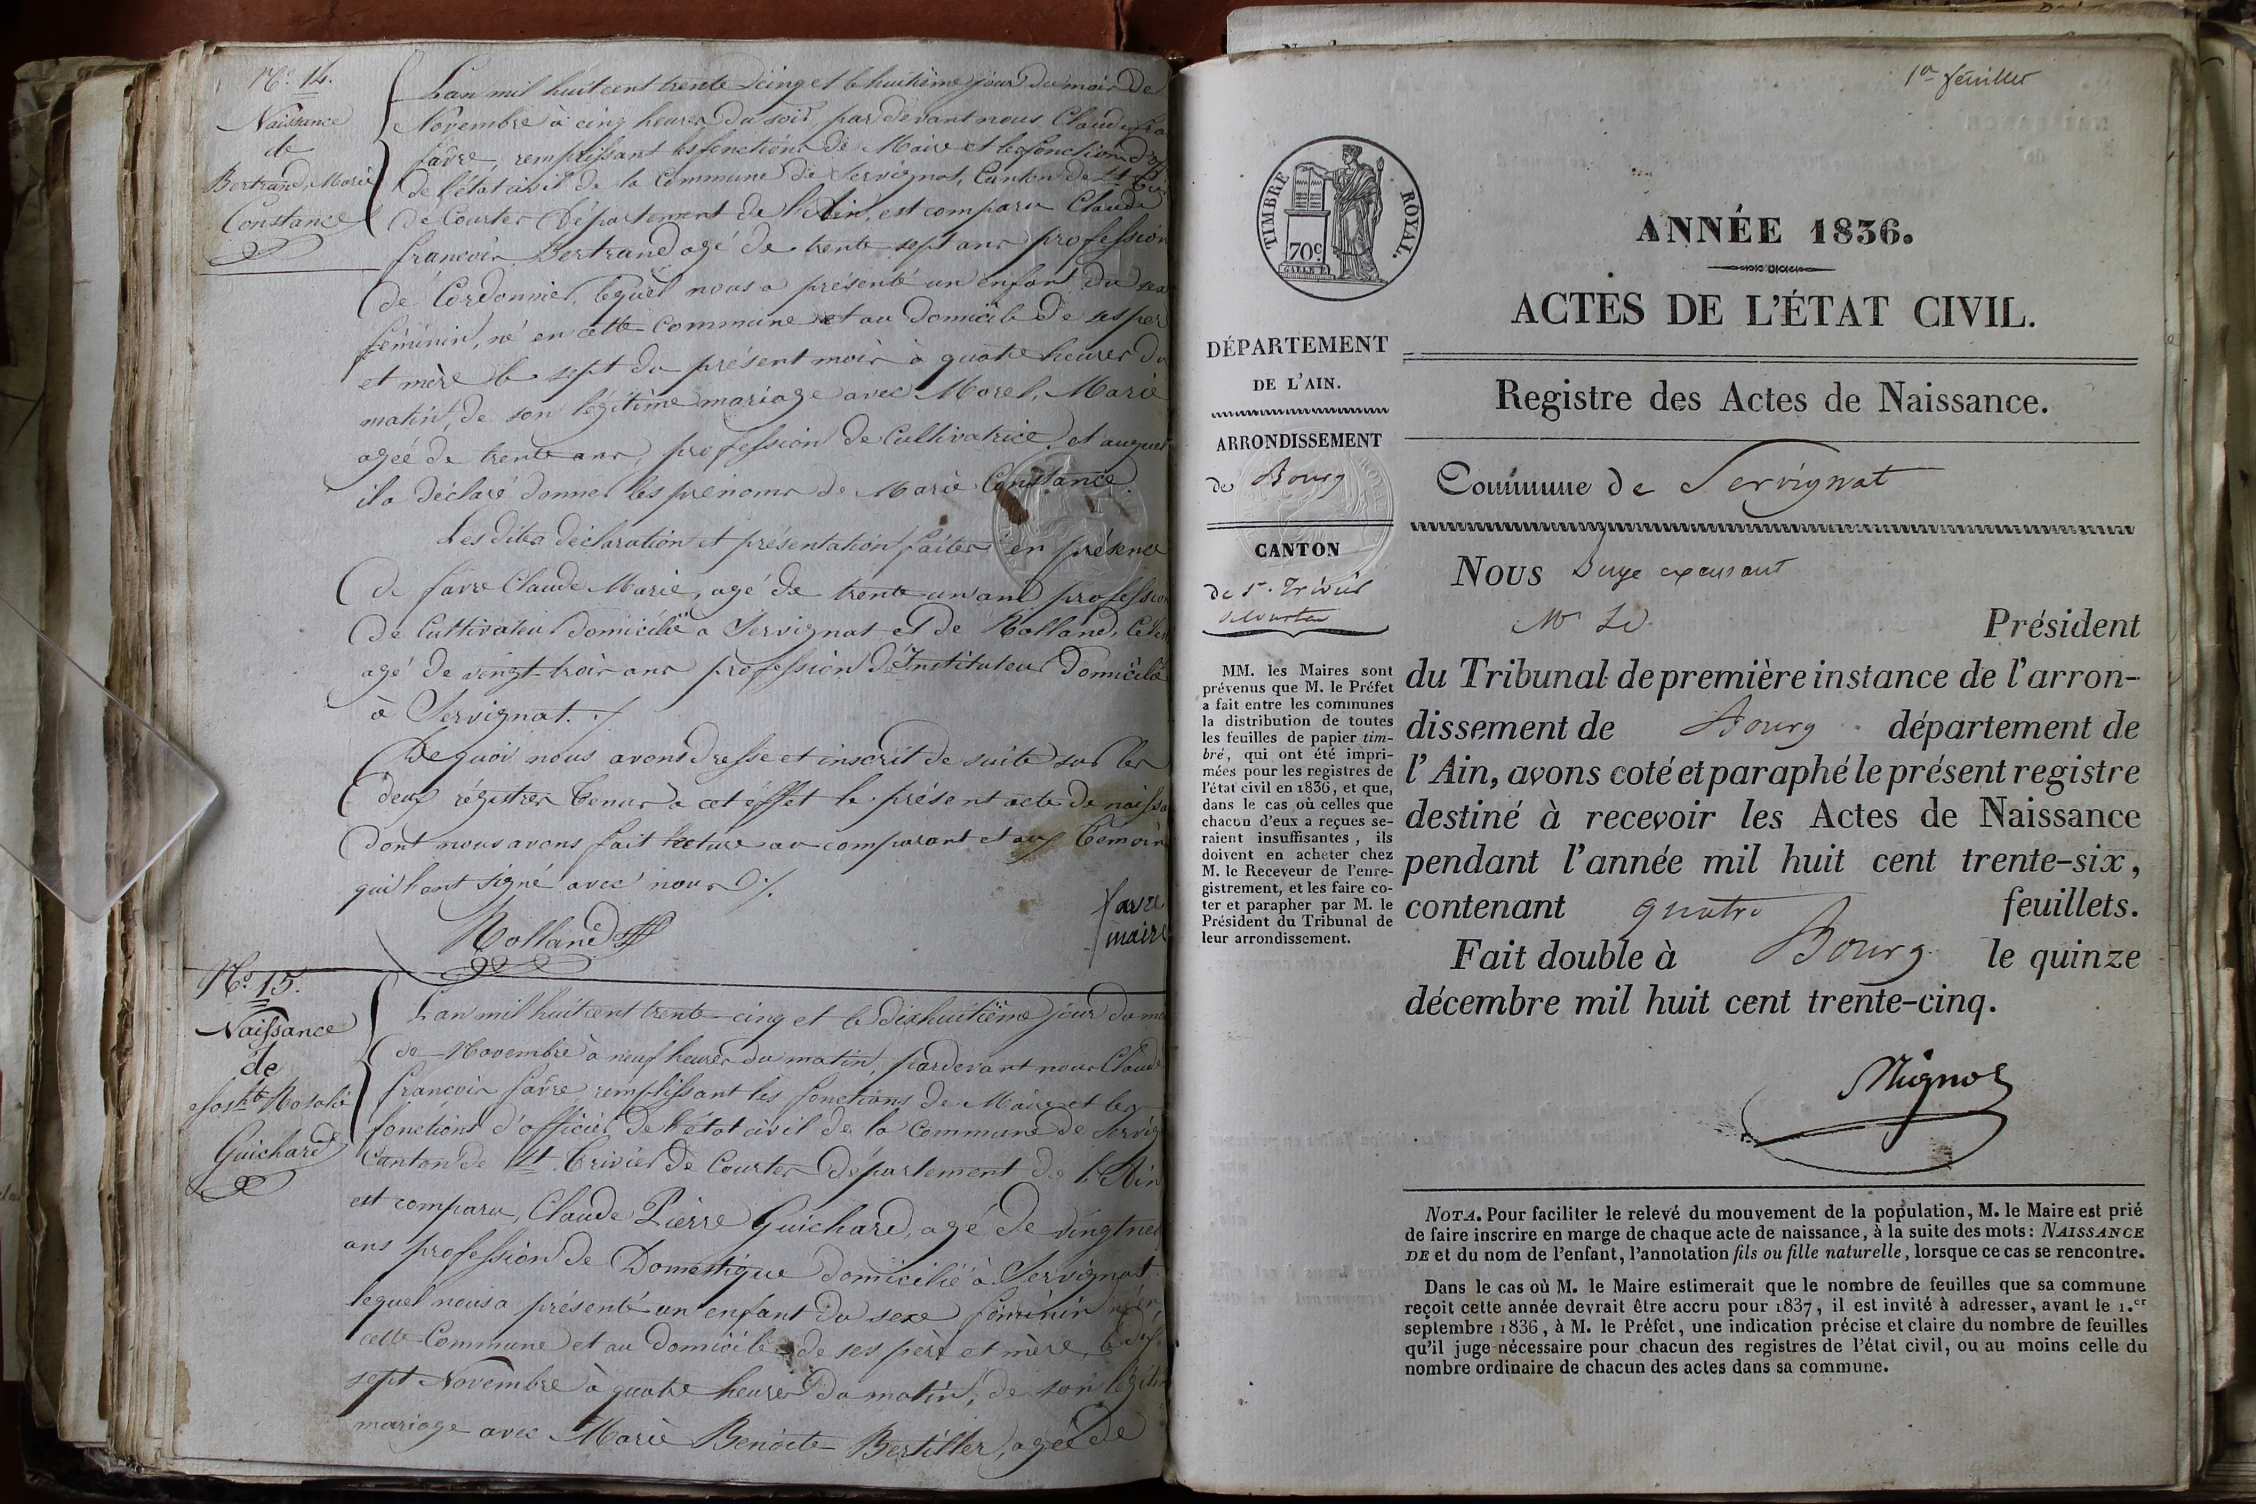 N.º 14.
Naissance
de
Bertrand, Marie
Constance
L'an mil huit cent trente cinq et le huitième jour du mois de
Novembre à cinq heures du soir, pardevant nous Claude
favre, remplissant les fonctions de Maire et les fonctions
de l'état civil de la Commune de Servignat, Canton de St.
de Courtes Département de l'Ain, est comparu Claude
françois Bertrand agé de trente sept ans profession
de Cordonnier, lequel nous a présenté un enfant du sexe
féminin, né en cette Commune et au Domicile de ses père
et mère le sept du présent mois à quatre heures du
matin, de son légitime mariage avec Morel, Marie
agée de trente ans, profession de Cultivatrice, et auquel
il a déclaré donner les prénoms de Marie Constance.
Les dites déclaration et présentation faites en présence
de favre Claude Marie, agé de trente un ans profession
de Cultivateur domicilié a Servignat et de Rolland,
agé de vingt trois ans profession d'Instituteur Domicilié
à Servignat. ./
De quoi nous avons dressé et inscrit de suite sur les
deux régitres tenus a cet éffet le présent acte de naissa
dont nous avons fait lecture au comparant et aux témoins
qui hont signé avec nous ./.
Rolland
favre
maire
N.º 15.
Naissance
de
Rosalie
Guichard
L'an mil huit cent trente-cinq et le dixhuitième jour du
de Novembre à neuf heures du matin, pardevant nous Claude
françois favre, remplissant les fonctions de Maire et les
fonctions d'officier de l'état civil de la Commune de Servig
Canton de St. Trivier de Courtes Département de l'Ain
est comparu, Claude Pierre Guichard, agé de vingtneuf
ans profession de Domestique domicilié à Servignat
lequel nous a présenté un enfant du sexe féminin né en
cette Commune et au domicile de ses père et mère, le dix
sept Novembre à quatre heures du matin, de son légiti
mariage avec Marie Benoite Bertiller, agée de
1er feuillet
TIMBRE ROYAL.
70c
ANNÉE 1836.
ACTES DE L'ÉTAT CIVIL.
DÉPARTEMENT
DE L'AIN.
ARRONDISSEMENT
de Bourg
CANTON
de St. Trivier
de Courtes
MM. les Maires sont
prévenus que M. le Préfet
a fait entre les communes
la distribution de toutes
les feuilles de papier tim-
bré, qui ont été impri-
mées pour les registres de
l'état civil en 1836, et que,
dans le cas où celles que
chacun d'eux a reçues se-
raient insuffisantes, ils
doivent en acheter chez
M. le Receveur de l'enre-
gistrement, et les faire co-
ter et parapher par M. le
Président du Tribunal de
leur arrondissement.
Registre des Actes de Naissance.
Commune de Servignat
NOUS Juge
Mr Le Président
du Tribunal de première instance de l'arron-
dissement de Bourg département de
l'Ain, avons coté et paraphé le présent registre
destiné à recevoir les Actes de Naissance
pendant l'année mil huit cent trente-six,
contenant quatre feuillets.
Fait double à Bourg le quinze
décembre mil huit cent trente-cinq.
NOTA. Pour faciliter le relevé du mouvement de la population, M. le Maire est prié
de faire inscrire en marge de chaque acte de naissance, à la suite des mots: NAISSANCE
DE et du nom de l'enfant, l'annotation fils ou fille naturelle, lorsque ce cas se rencontre.
Dans le cas où M. le Maire estimerait que le nombre de feuilles que sa commune
reçoit cette année devrait être accru pour 1837, il est invité à adresser, avant le 1.er
septembre 1836, à M. le Préfet, une indication précise et claire du nombre de feuilles
qu'il juge nécessaire pour chacun des registres de l'état civil, ou au moins celle du
nombre ordinaire de chacun des actes dans sa commune.